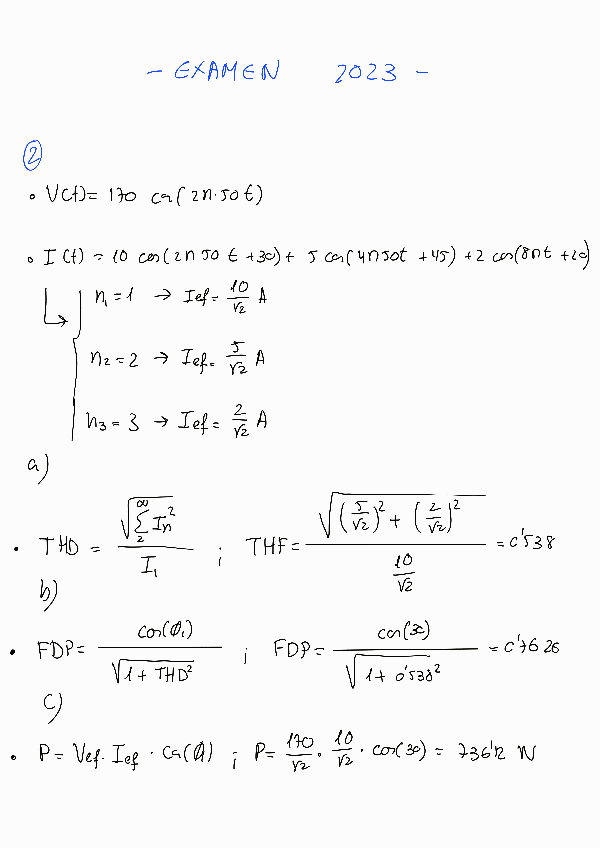 - EXAMEN 2023 -
2
• V(t)= 170 cos(2π·50t)
• I(t) = 10 cos(2π50t+30)+ 5 cos(4π50t +45) +2 cos(8πt +20)
n₁ = 1 → Ief = 10/√2 A
n₂ = 2 → Ief = 5/√2 A
n₃ = 3 → Ief = 2/√2 A
a)
• THD = √(∑₂^∞ In²) / I₁ ; THF = √((5/√2)² + (2/√2)²) / (10/√2) = 0'538
b)
• FDP = cos(φ₁) / √(1 + THD²) ; FDP = cos(30) / √(1 + 0'538²) = 0'7626
c)
• P = Vef · Ief · cos(φ₁) ; P = 170/√2 · 10/√2 · cos(30) = 736'12 W